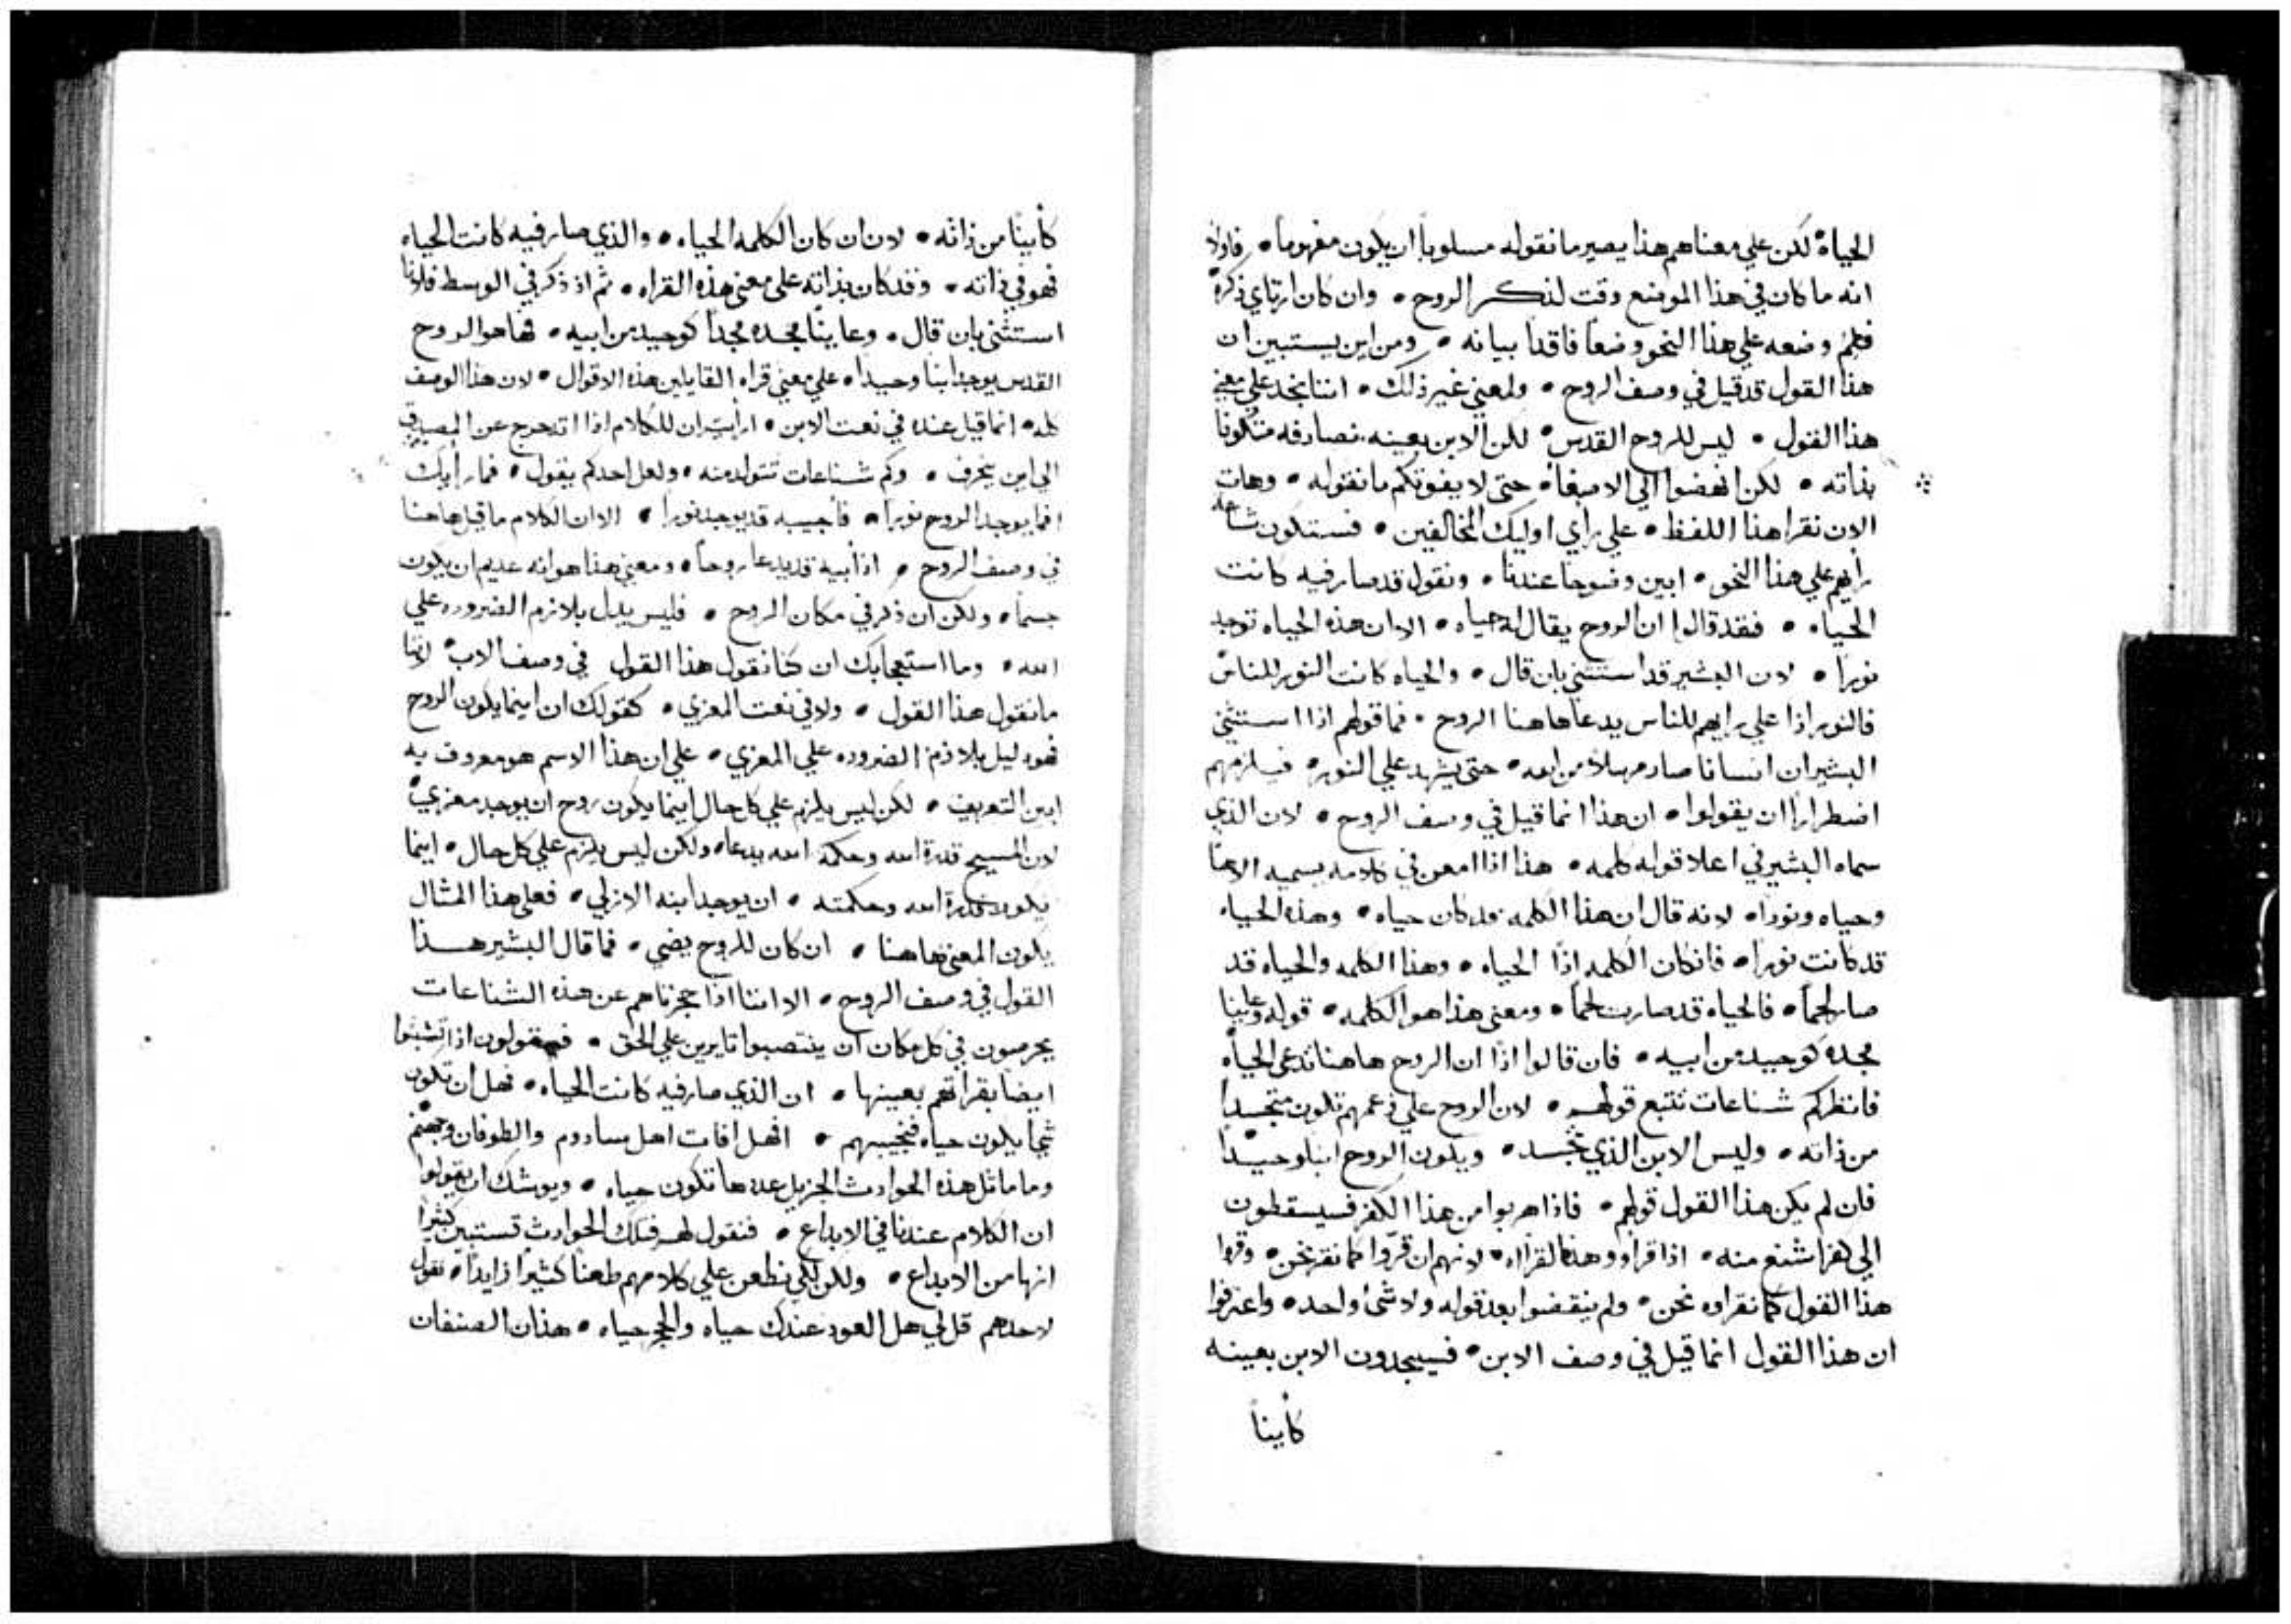 الحياة لكن علي معناهم هذا يصير ما نقوله مسلوباً ان يكون مفهوماً • فاولاً
انه ما كان في هذا الموضع وقت لذكر الروح • وان كان ارتاي ذكره
فلم وضعه علي هذا النحو وضعاً فاقداً بيانه • ومن اين يستبين ان
هذا القول قد قيل في وصف الروح • ولمعني غير ذلك • اننا نجد علي معني
هذا القول • ليس للروح القدس • لكن الابن بعينه نصادفه متكوناً
بذاته • لكن انهضوا الي الاصغاء • حتي لا يفوتكم ما نقوله • وهات
الان نقرا هذا اللفظ • علي راي اوليك المخالفين • فستكون شناعه
رايهم علي هذا النحو • ابين وضوحا عندنا • ونقول قد صار فيه كانت
الحياه • فقد قالوا ان الروح يقال له حياه • الا ان هذه الحياه توجد
نوراً • لان البشير قد استثني بان قال • والحياه كانت النور للناس
فالنور اذا علي رايهم للناس يدعا هاهنا الروح • فما قولهم اذا استثني
البشير ان انسانا صار مرسلا من الله • حتي يشهد علي النور • فيلزمهم
اضطراراً ان يقولوا • ان هذا انما قيل في وصف الروح • لان الذي
سماه البشير في اعلا قوله كلمه • هذا اذا امعن في كلامه يسميه الاهاً
وحياه ونوراً • لانه قال ان هذا الكلمه قد كان حياه • وهذه الحياه
قد كانت نوراً • فان كان الكلمه اذًا الحياه • وهذا الكلمه والحياه قد
صار لحماً • فالحياه قد صارت لحماً • ومعني هذا هو الكلمه • قوله وعاينا
مجده كوحيد من ابيه • فان قالوا اذًا ان الروح هاهنا تدعي الحياه
فانظر كم شناعات تتبع قولهم • لان الروح علي زعمهم تكون متجسداً
من ذاته • وليس الابن الذي تجسد • ويكون الروح ابنا وحيداً
فان لم يكن هذا القول قولهم • فاذا هربوا من هذا الكفر فسيسقطون
الي كفر اشنع منه • اذا قراوو هذه القراه • لانهم ان قرّوا كما نقر نحن • وقروا
هذا القول كما نقراوه نحن • ولم ينقضوا بعد قوله ولا شئ واحد • واعترفوا
ان هذا القول انما قيل في وصف الابن • فسيجدون الابن بعينه
كأيناً
كأيناً من ذاته • لان ان كان الكلمه الحياه • والذي صار فيه كانت الحياه
فهو في ذاته • وقد كان بذاته علي معني هذه القراه • ثم اذ ذكر في الوسط
استثني بان قال • وعاينا مجده مجداً كوحيد من ابيه • فها هو الروح
القدس يوجد ابنا وحيداً • علي معني قراه القايلين هذه الاقوال • لان هذا الوصف
كله • انما قيل عنده في نعت الابن • ارأيت ان للكلام اذا تدحرج عن
الي اين ينحرف • وكم شناعات تتولد منه • ولعل احدكم يقول • فما رأيك
افما يوجد الروح نوراً • فأجيبه قد يوجد نوراً • الا ان الكلام ما قيل هاهنا
في وصف الروح • اذ ابيه قد يدعا روحاً • ومعني هذا هو انه عديم ان يكون
جسماً • ولكن ان ذكر في مكان الروح • فليس يدل بلازم الضروره علي
الله • وما استعجابك ان كنا نقول هذا القول في وصف الاب • لاننا
ما نقول هذا القول • ولا في نعت المعزي • كقولك ان اينما يكون الروح
فهو دليل بلازم الضروره علي المعزي • علي ان هذا الاسم هو معروف به
ابين التعريف • لكن ليس يلزم علي كل حال اينما يكون روح ان يوجد معزي
لان المسيح قدرة الله وحكمة الله يدعا • ولكن ليس يلزم علي كل حال • اينما
يكون قدرة الله وحكمته • ان يوجد ابنه الازلي • فعلي هذا المثال
يكون المعني هاهنا • ان كان للروح يضي • فما قال البشير هذا
القول في وصف الروح • الا اننا اذا حجزناهم عن هذه الشناعات
يحرصون في كل مكان ان ينتصبوا ثايرين علي الحق • فيقولون اذا تشبثوا
ايضاً بقراتهم بعينها • ان الذي صار فيه كانت الحياه • فهل ان تكون
شيا يكون حياه فنجيبهم • افهل افات اهل سادوم والطوفان وجهنم
وما ماثل هذه الحوادث الجزيل عددها تكون حياه • ويوشك ان يقولوا
ان الكلام عندنا في الابداع • فنقول لهم فتلك الحوادث تستبين كثيراً
انها من الابداع • ولكن لكي نطعن علي كلامهم طعناً كثيراً زايداً • نقول
لاحدهم قل لي هل العود عندك حياه والحجر حياه • هذان الصنفان